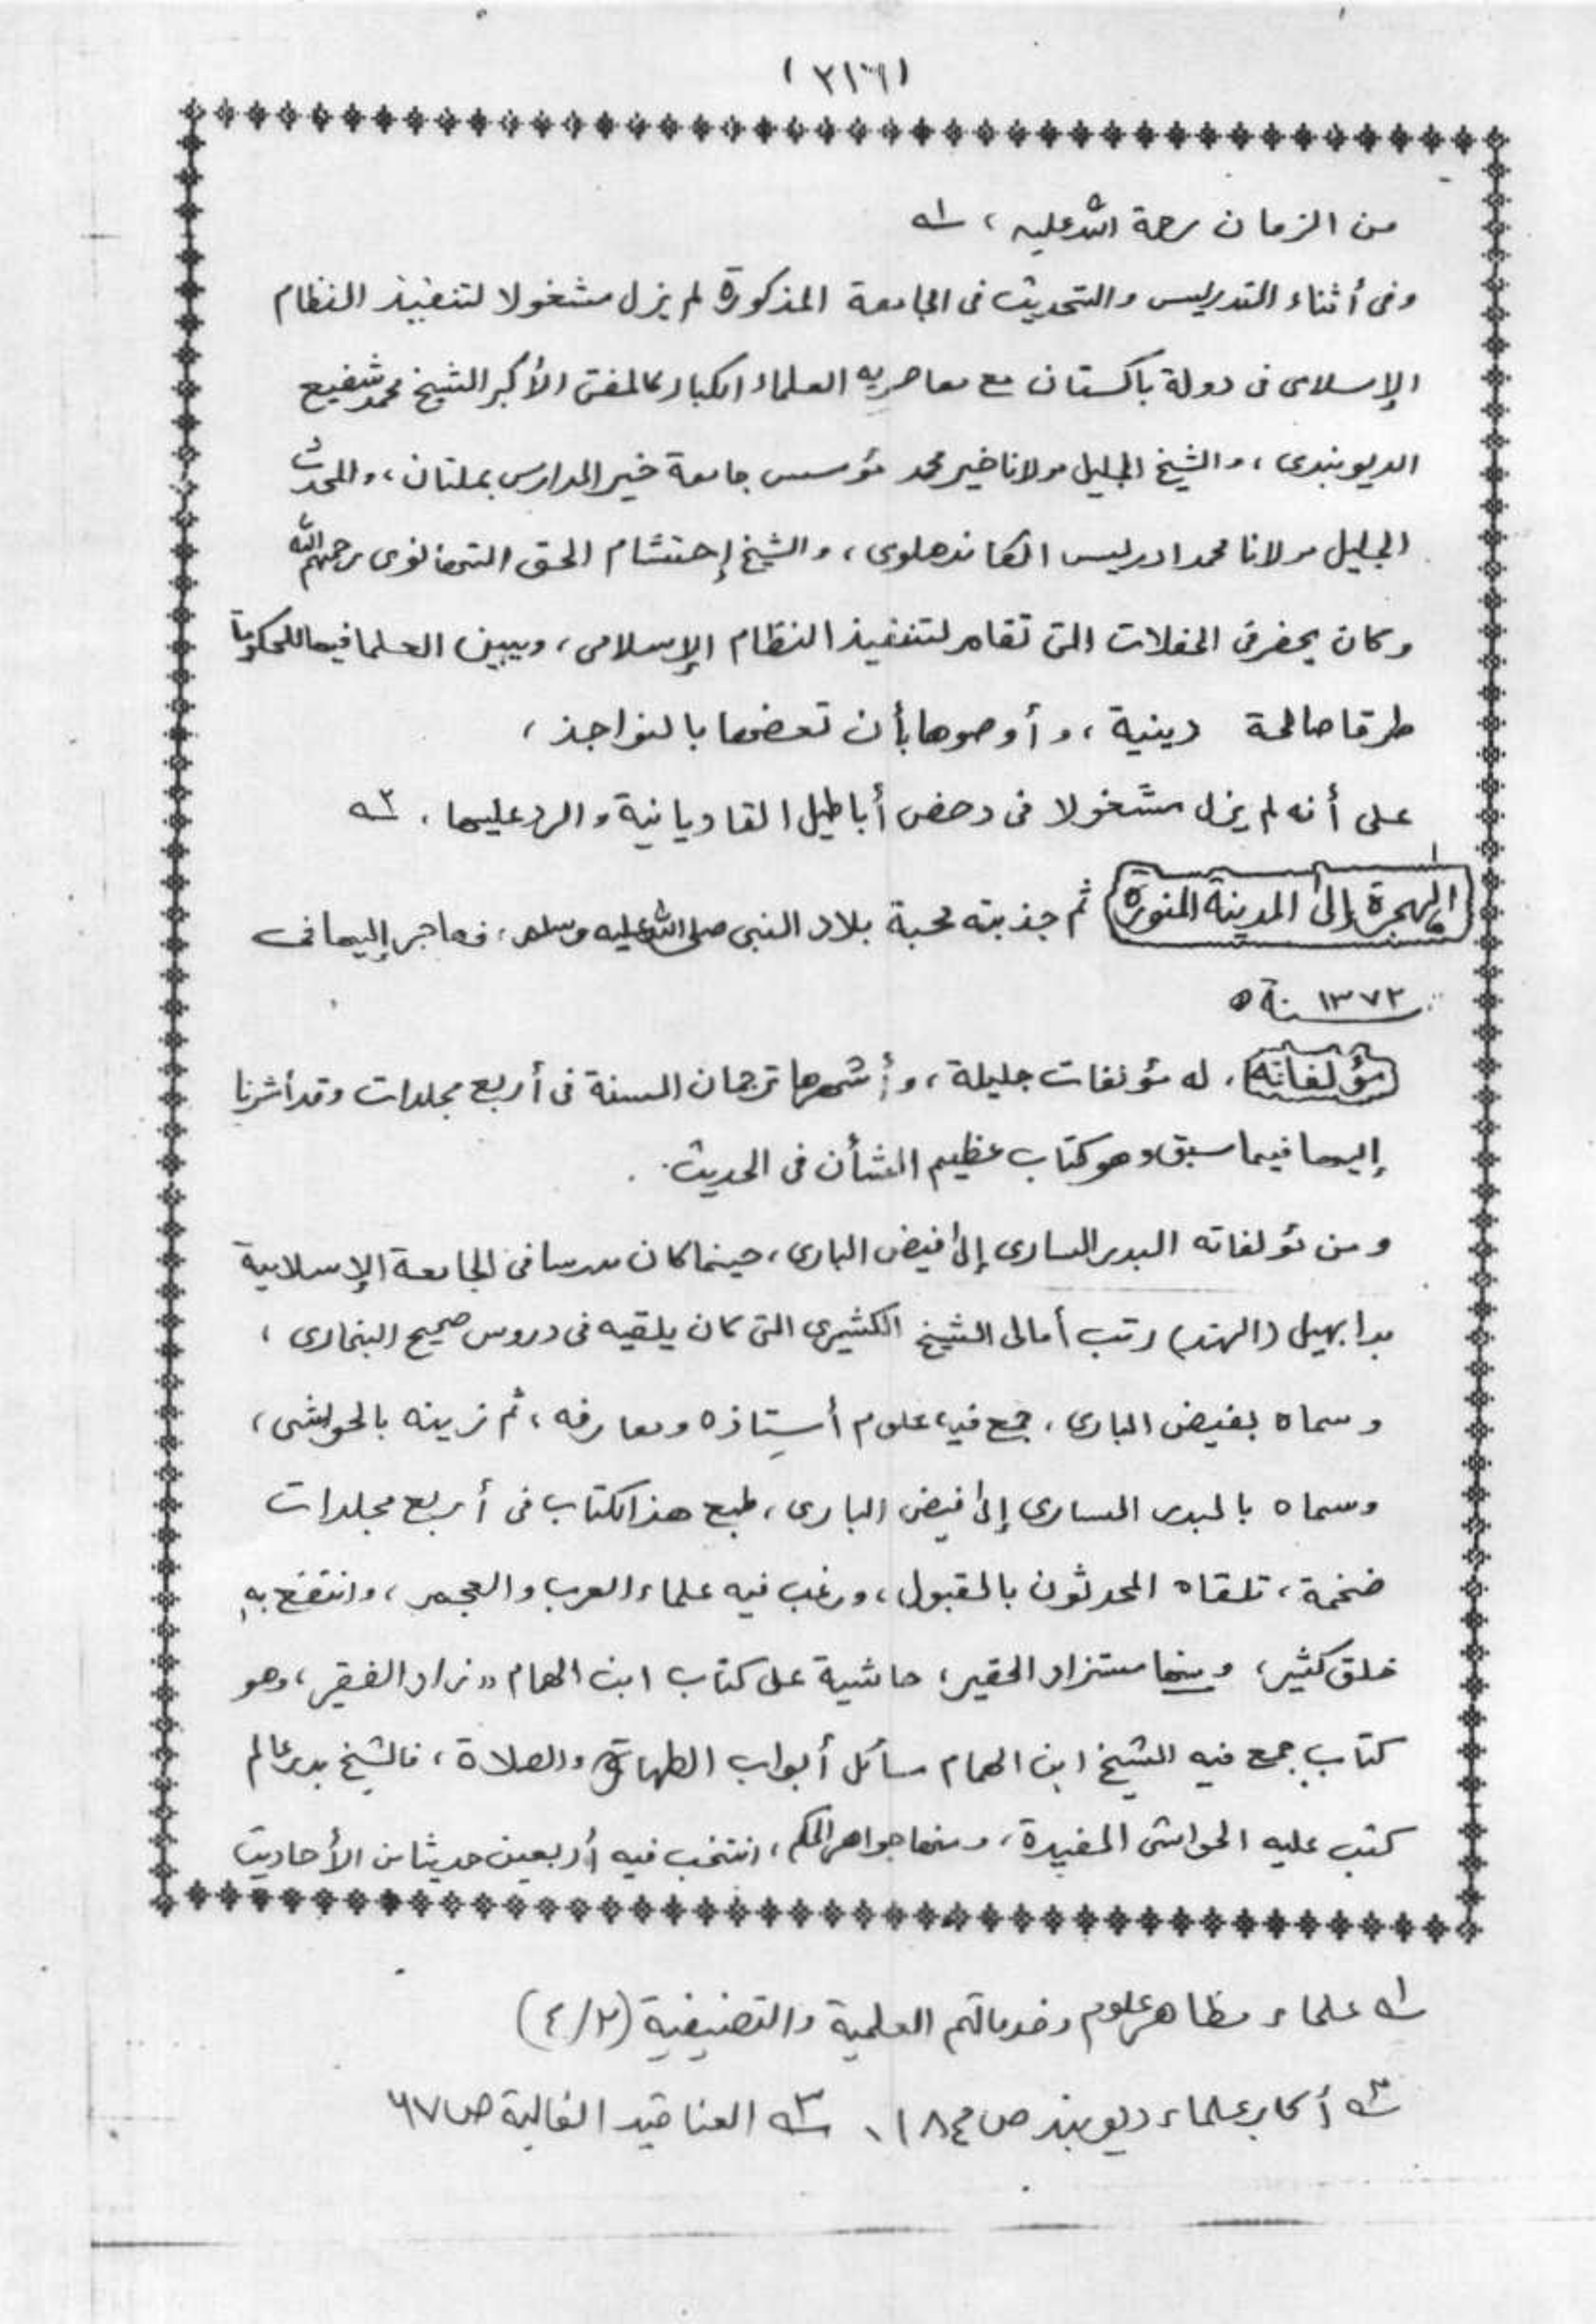 من الزمان رحمة الله عليه ، ١ـه
وفى أثناء التدريس والتحديث فى الجامعة المذكورة لم يزل مشغولا لتنفيذ النظام
الإسلامى فى دولة باكستان مع معاصريه العلماء الكبار كالمفتى الأكبر الشيخ محمد شفيع
الديوبندى ، والشيخ الجليل مولانا خير محمد مؤسس جامعة خير المدارس بملتان ، والمحدث
الجليل مولانا محمد ادريس الكاندهلوى ، والشيخ إحتشام الحق التهانوى رحمهم الله
وكان يحضر فى الحفلات التى تقام لتنفيذ النظام الإسلامى ، ويبين العلما فيها للحكومة
طرقا صالحة دينية ، وأوصوها بأن تعضها بالنواجذ ،
على أنه لم يزل مشغولا فى دحض أباطيل القاديانية والرد عليها . ٢ـه
الهجرة إلى المدينة المنورة ثم جذبته محبة بلاد النبى صلى الله عليه وسلم ، فهاجر إليها فى
سنة ١٣٧٢ ه
مؤلفاته ، له مؤلفات جليلة ، وأشهرها ترجمان السنة فى أربع مجلدات وقد أشرنا
إليها فيما سبق وهو كتاب عظيم الشأن فى الحديث .
ومن مؤلفاته البدر السارى إلى فيض البارى ، حينما كان مدرسا فى الجامعة الإسلامية
بدابهيل (الهند) رتب أمالى الشيخ الكشيرى التى كان يلقيه فى دروس صحيح البخارى ،
وسماه بفيض البارى ، جمع فيه علوم أستاذه ومعارفه ، ثم زينه بالحواشى ،
وسماه بالبدر السارى إلى فيض البارى ، طبع هذا الكتاب فى أربع مجلدات
ضخمة ، تلقاه المحدثون بالقبول ، ورغب فيه علماء العرب والعجم ، وانتفع به
خلق كثير ، ومنها مستزاد الحقير ، حاشية على كتاب ابن الهمام " زاد الفقير ، وهو
كتاب جمع فيه الشيخ ابن الهمام مسائل أبواب الطهارة والصلاة ، فالشيخ بدر عالم
كتب عليه الحواشى المفيدة ، ومنها جواهر الحكم ، انتخب فيه أربعين حديثا من الأحاديث
١ـه علماء مظاهر علوم وخدماتهم العلمية والتصنيفية (٢/٤)
٢ـه أكابر علماء ديوبند ص ١٨٤ ، ٣ـه العناقيد الغالية ص ٦٧